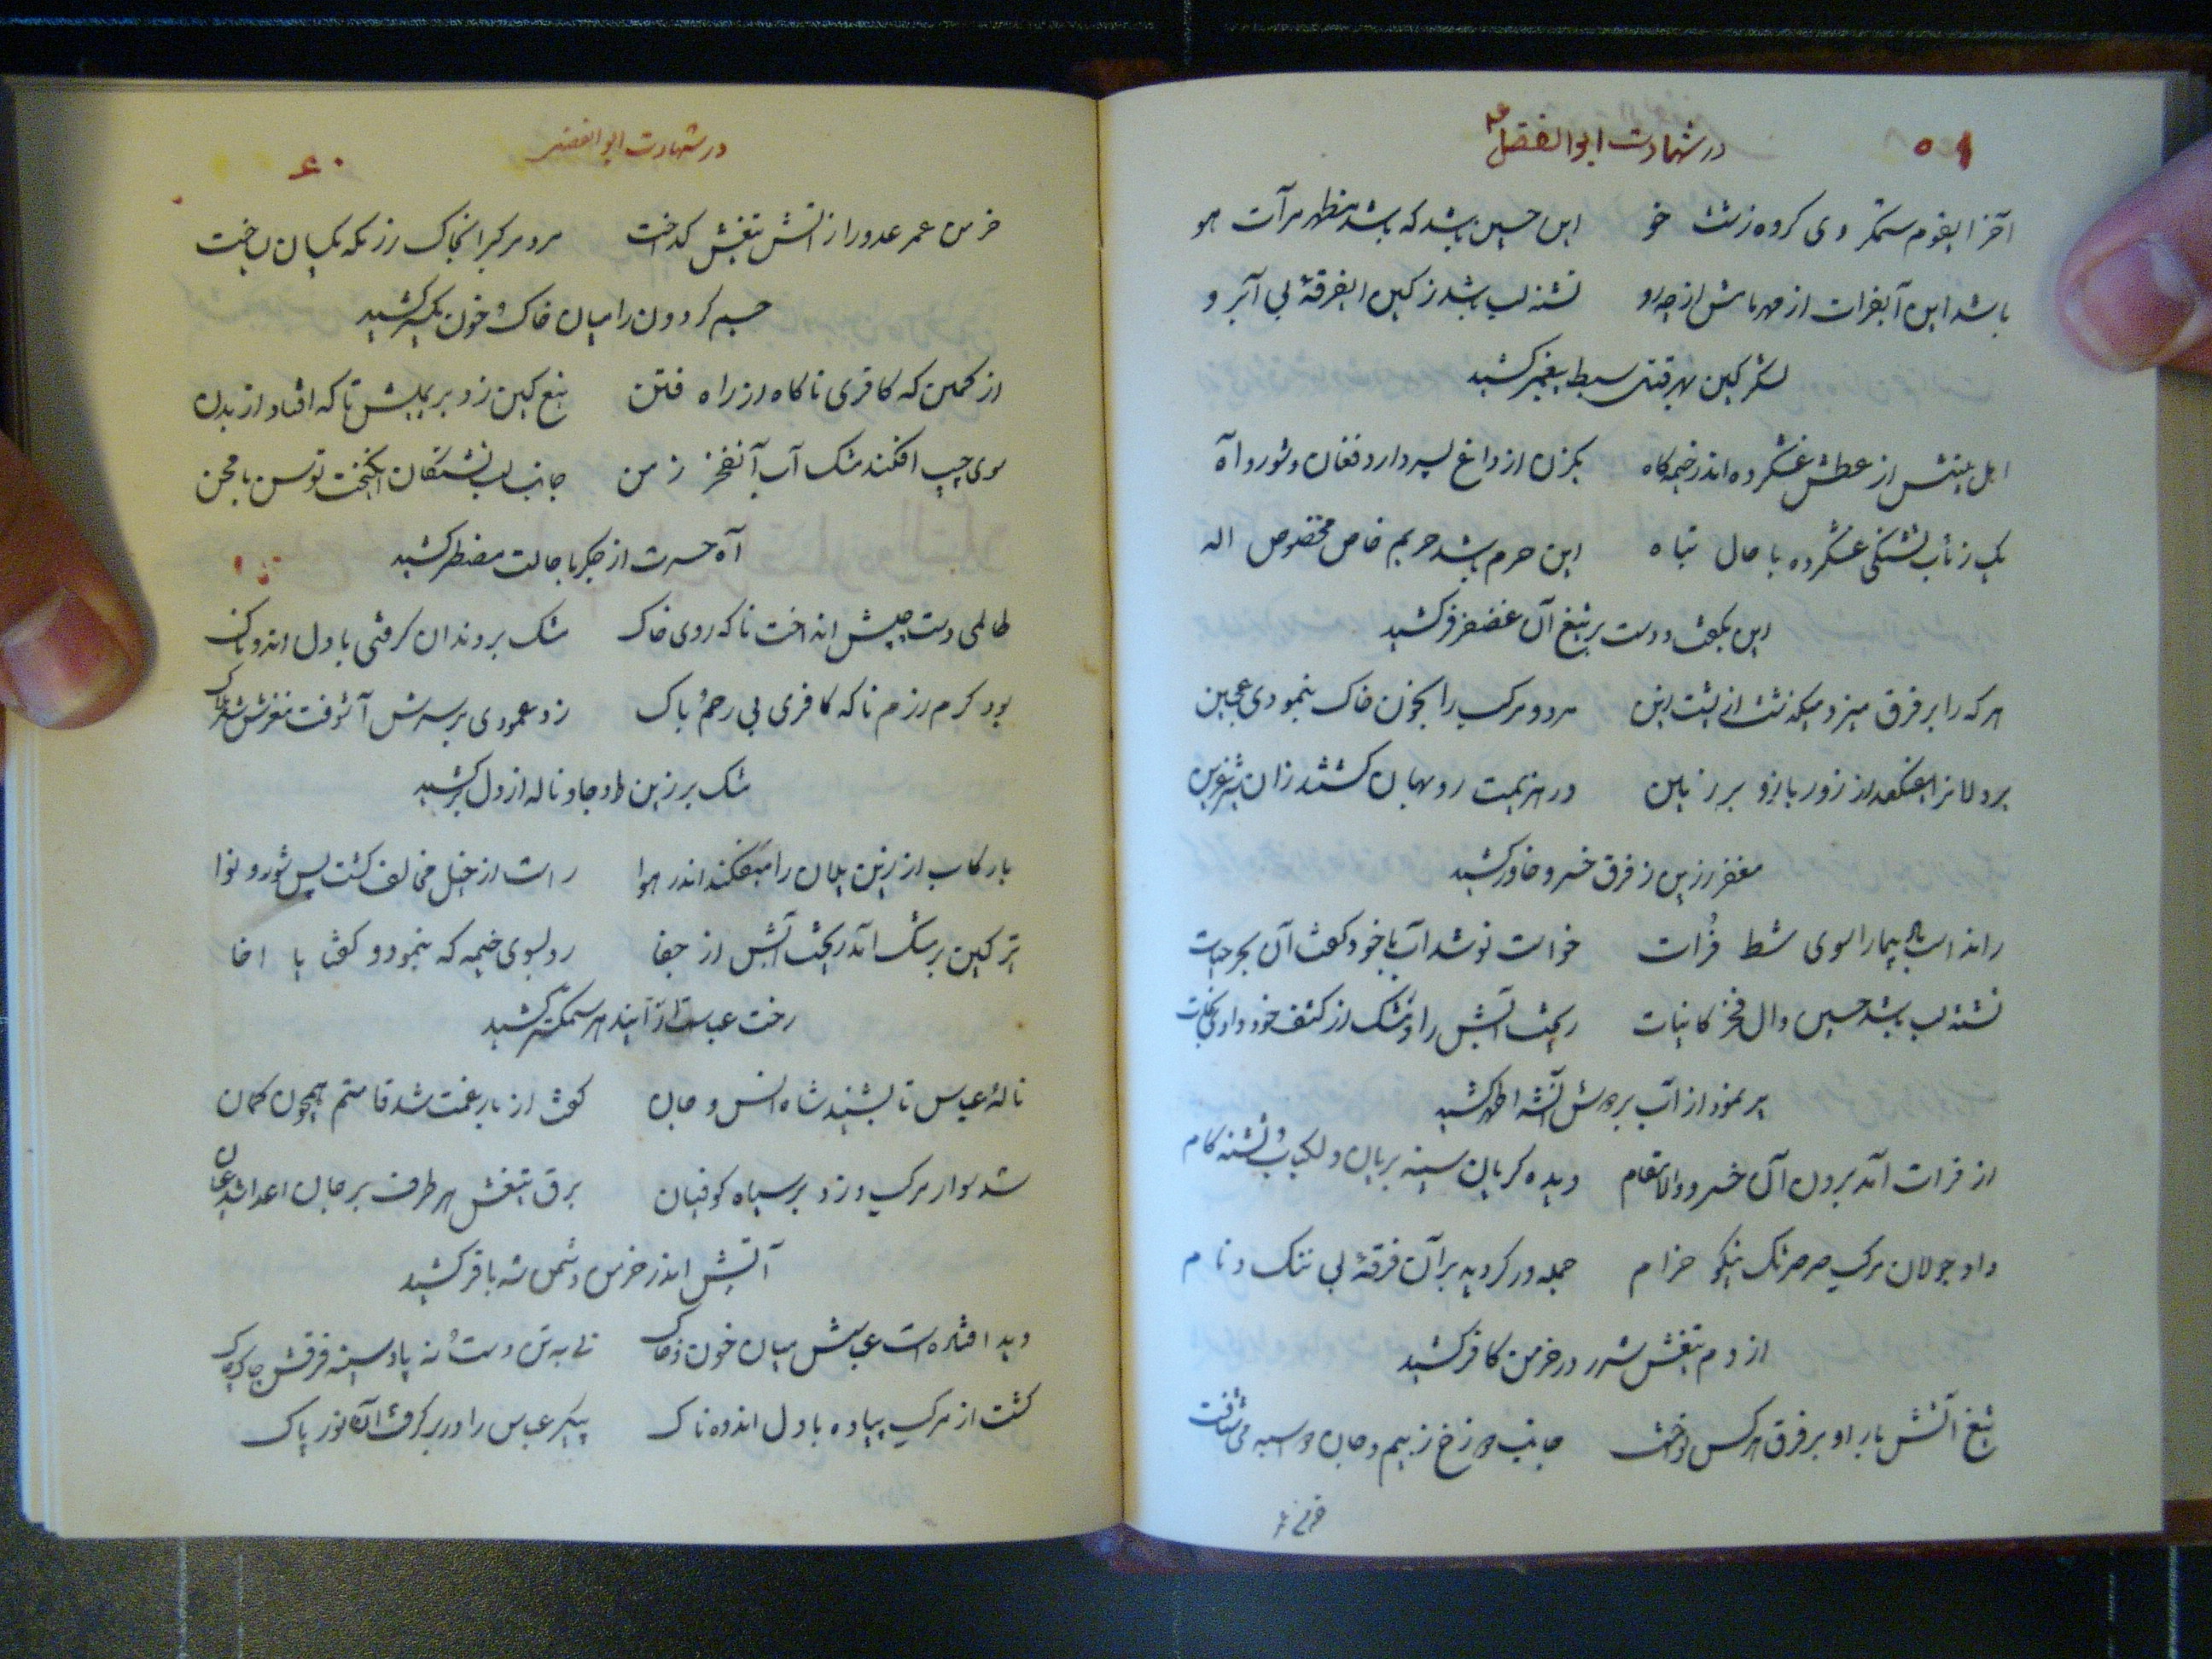 ۵۹ در شهادت ابوالفضل ع
آخر ایقوم ستمگر وی کروه زشت خو این حسین باشد که باشد مظهر مرآت هو
باشد این آبفرات از مهر مامش از چه رو تشنه لب باشد ز کین ایفرقهٔ بی آبرو
لشکر کین بهر قتل سبط پیغمبر کشید
اهل بیتش از عطش غشکرده اندر خیمه کاه یکزن از داغ پسر دارد فغان و شور و آه
یک ز تاب تشنکی غشکرده با حال تباه این حرم باشد حریم خاص مخصوص اله
این بگفت و دست بر تیغ آن غضنفر فر کشید
هر که را بر فرق میزد میکذشت از پشت زین مرد و مرکب را بخون خاک بنمودی عجین
از زور بازو بر زمین در هزیمت روبهان کشتند زان
مغفر زرین ز فرق خسرو خاور کشید
راند اسب باد پیما را سوی شط فرات خواست نوشد آب با خود کفت آن بحر حیات
تشنه لب باشد حسین و آل فخر کاینات ریخت آبش را و مشک از کتف خود
پر نمود از آب بر دوش آنشه اطهر کشید
از فرات آمد برون آن خسرو والا مقام دیده کریان سینه بریان و لکباب و تشنه کام
داد جولان مرکب صرصر تک نیکو خرام حمله ور کردید بر آن فرقهٔ بی ننک و نام
از دم تیغش شرر در خرمن کافر کشید
تیغ آتش بار او بر فرق هر کس نواخت جانب دوزخ ز بیم و جان
خرمن عمر
در شهادت ابوالفضل ۶۰
خرمن عمر عدو را ز آتش تیغش کداخت مرد و مرکبرا بخاک رزمکه یکسان بساخت
جسم کردون را میان خاک و خون یکسر کشید
از کمین که کافری ناکاه از راه فتن تیغ کین زد بر یمینش تا که افتاد از بدن
سوی چپ افکند مشک آب آنفخر زمن جانب لب تشنکان انکیخت توسن با محن
آه حسرت از جکر با حالت مضطر کشید
ظالمی دست چپش انداخت تا که روی خاک مشک بر دندان کرفتی با دل اندوهناک
بود کرم رزم ناکه کافری بی رحم و باک زد عمودی بر سرش آشوفت مغزش
مشک بر زین داد جا و ناله از دل بر کشید
با رکاب از زین یلان را میفکند اندر هوا راست از خیل مخالف کشت پس شور و نوا
تیر کین بر مشک آمد ریخت آبش از جفا رو بسوی خیمه که بنمود و کفت یا اخا
رخت عباست از
نالهٔ عباس تا بشنید شاه انس و جان کفت از بار غمت شد قامتم همچون کمان
شد سوار مرکب و زد بر سپاه کوفیان برق تیغش هر طرف بر جان اعدا شد عیان
آتش اندر خرمن دشمن شه باقر کشید
دید افتاده است عباسش میان خون و خاک نی به تن دست و نه پا و سینه فرقش چاک چاک
کشت از مرکب پیاده با دل اندوه ناک پیکر عباس را در بر کرفت آن نور پاک